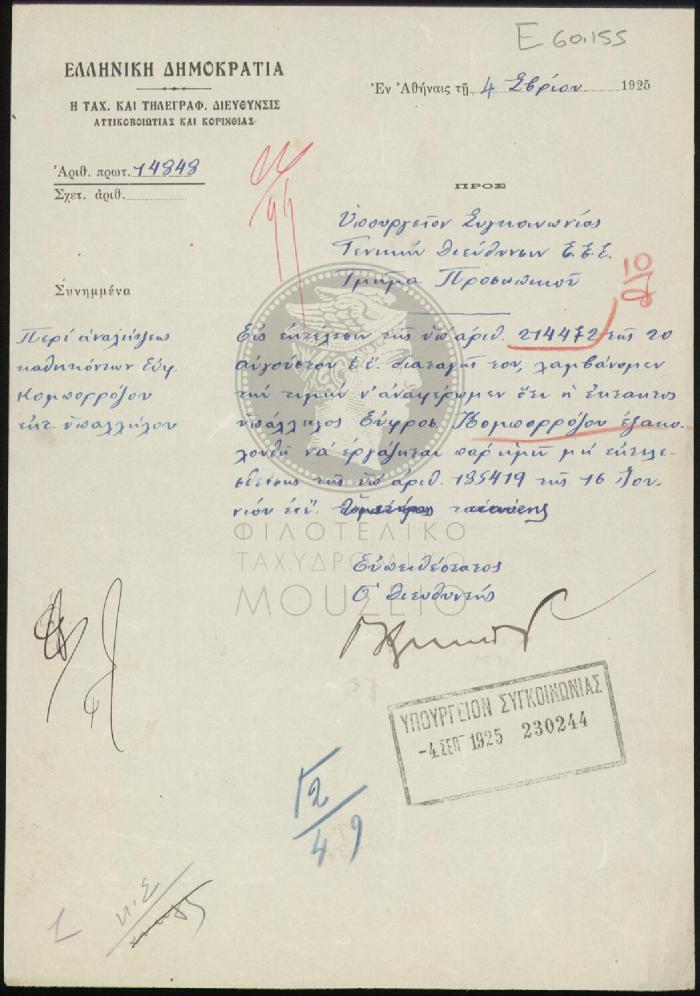 Ε 60.155
ΕΛΛΗΝΙΚΗ ΔΗΜΟΚΡΑΤΙΑ
Η ΤΑΧ. ΚΑΙ ΤΗΛΕΓΡΑΦ. ΔΙΕΥΘΥΝΣΙΣ
ΑΤΤΙΚΟΒΟΙΩΤΙΑΣ ΚΑΙ ΚΟΡΙΝΘΙΑΣ
Ἐν Ἀθήναις τῇ 4 7βρίου 1925
Ἀριθ. πρωτ. 14848
Σχετ. ἀριθ.
ΠΡΟΣ
Ὑπουργεῖον Συγκοινωνίας
Γενικὴν Διεύθυνσιν Τ.Τ.Τ.
Τμῆμα Προσωπικοῦ
Συνημμένα
Περὶ ἀναλήψεως
καθηκόντων Εὐφ.
Κομπορρόζου
ἐκτ. ὑπαλλήλου
Εἰς ἐκτέλεσιν τῆς ὑπ' ἀριθ. 214472 τῆς 20
αὐγούστου ἐ.ἔ. διαταγῆς του, λαμβάνομεν
τὴν τιμὴν ν' ἀναφέρωμεν ὅτι ἡ ἔκτακτος
ὑπάλληλος Εὐφροσ. Κομπορρόζου ἐξακο-
λουθῆ νὰ ἐργάζηται παρ' ἡμῖν μὴ ἐκτελε-
σθείσης τῆς ὑπ' ἀριθ. 135419 τῆς 16 Ἰου-
νίου ἐ.ἔ.
Εὐπειθέστατος
Ὁ Διευθυντής
ΦΙΛΟΤΕΛΙΚΟ
ΤΑΧΥΔΡΟΜΙΚΟ
ΜΟΥΣΕΙΟ
ΥΠΟΥΡΓΕΙΟΝ ΣΥΓΚΟΙΝΩΝΙΑΣ
-4 ΣΕΠ 1925 230244
12
4 9
1